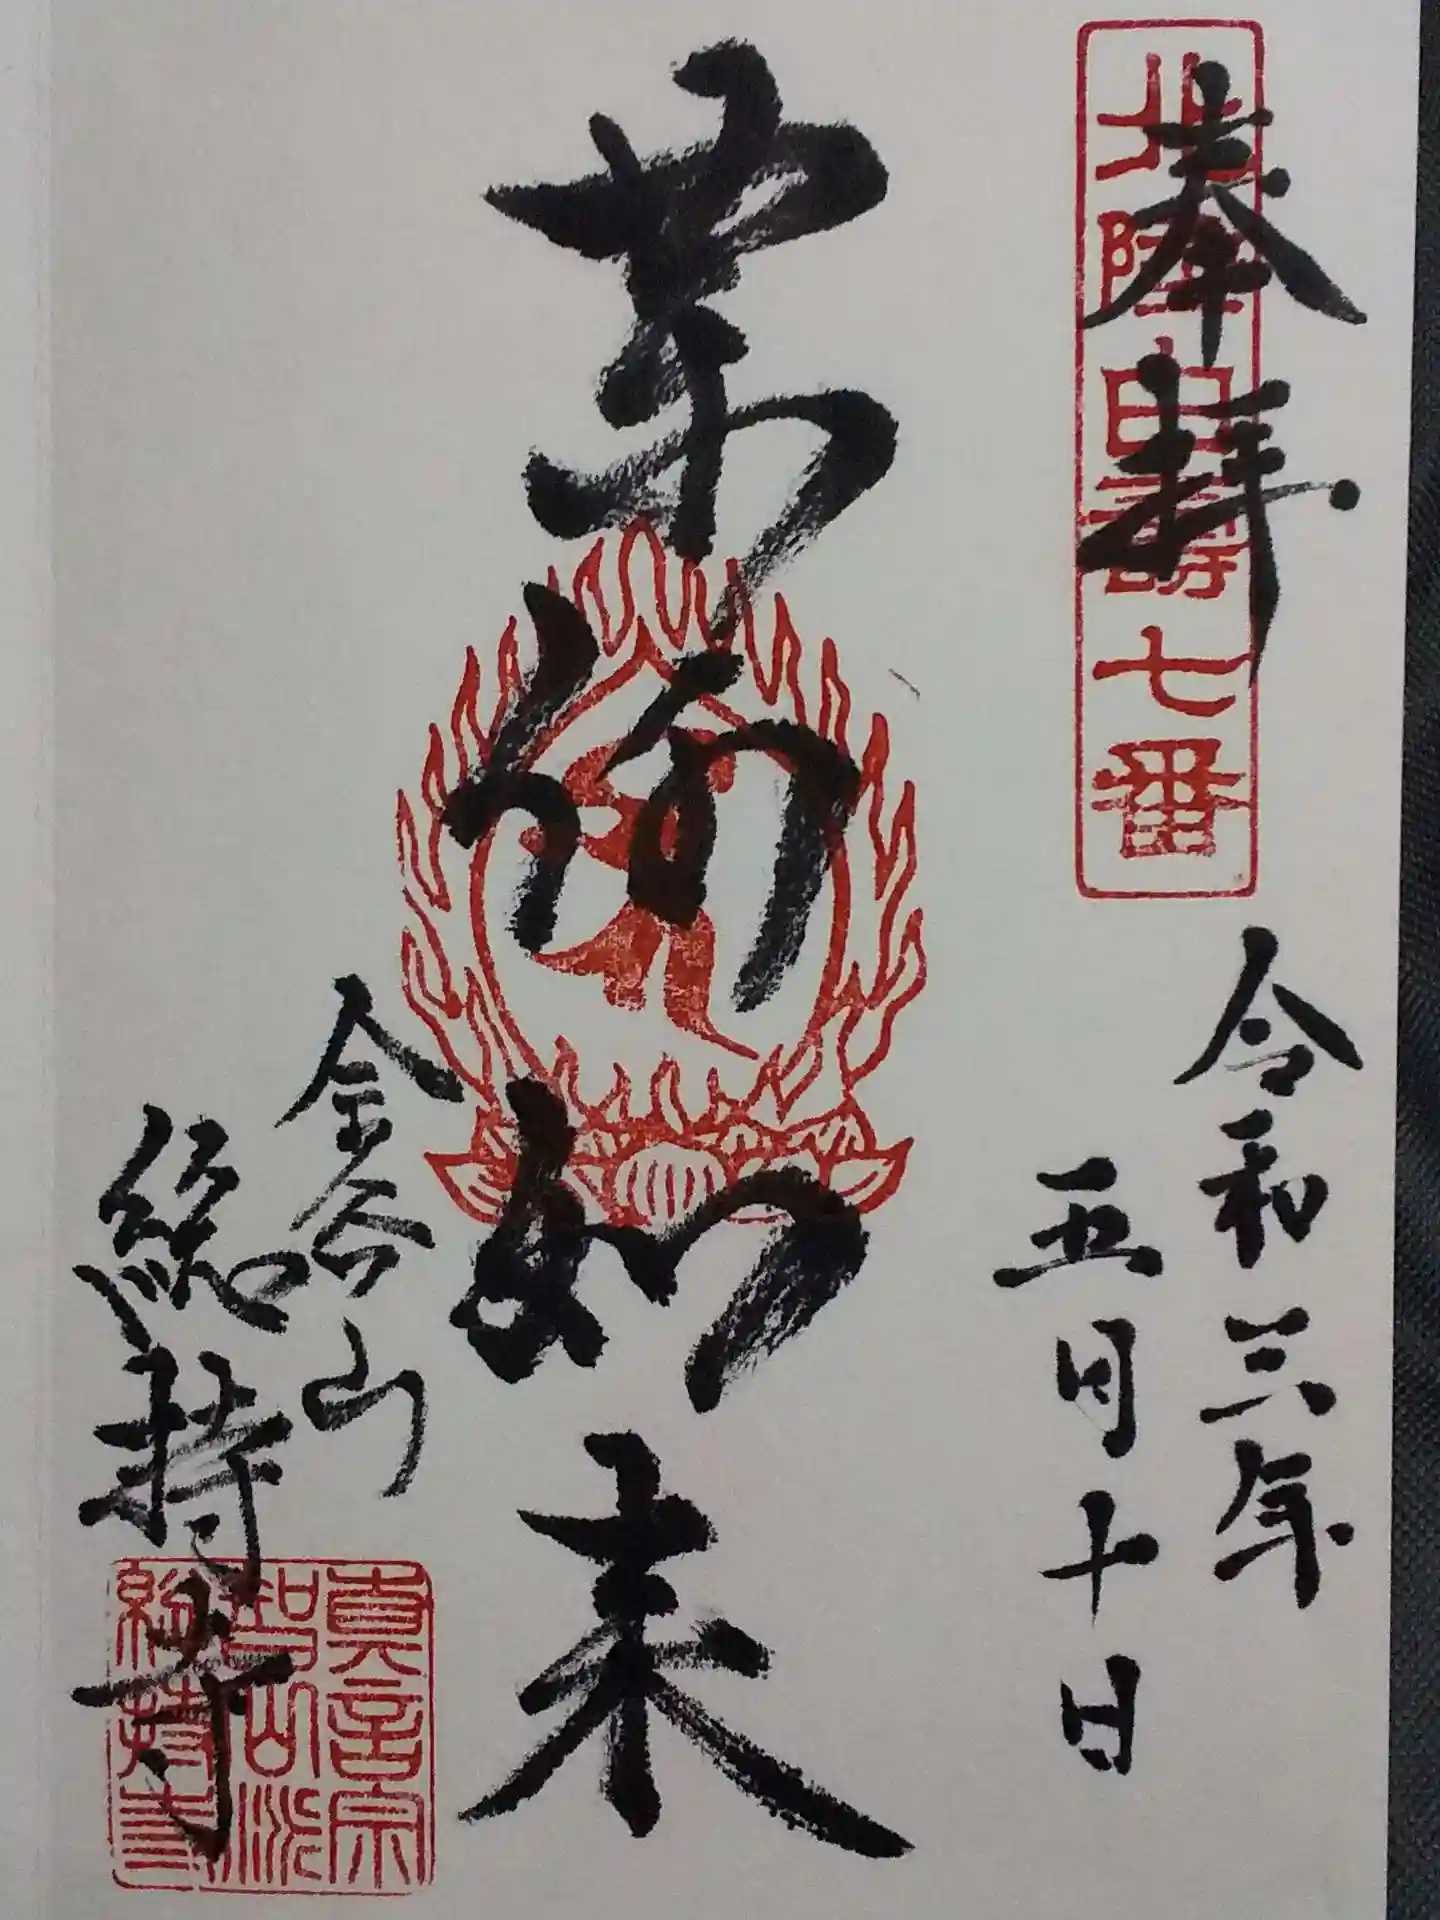 北陸白壽七番
奉拝
令和三年
五月十日
薬師如来
金谷山
総持寺
真言宗
智山派
総持寺